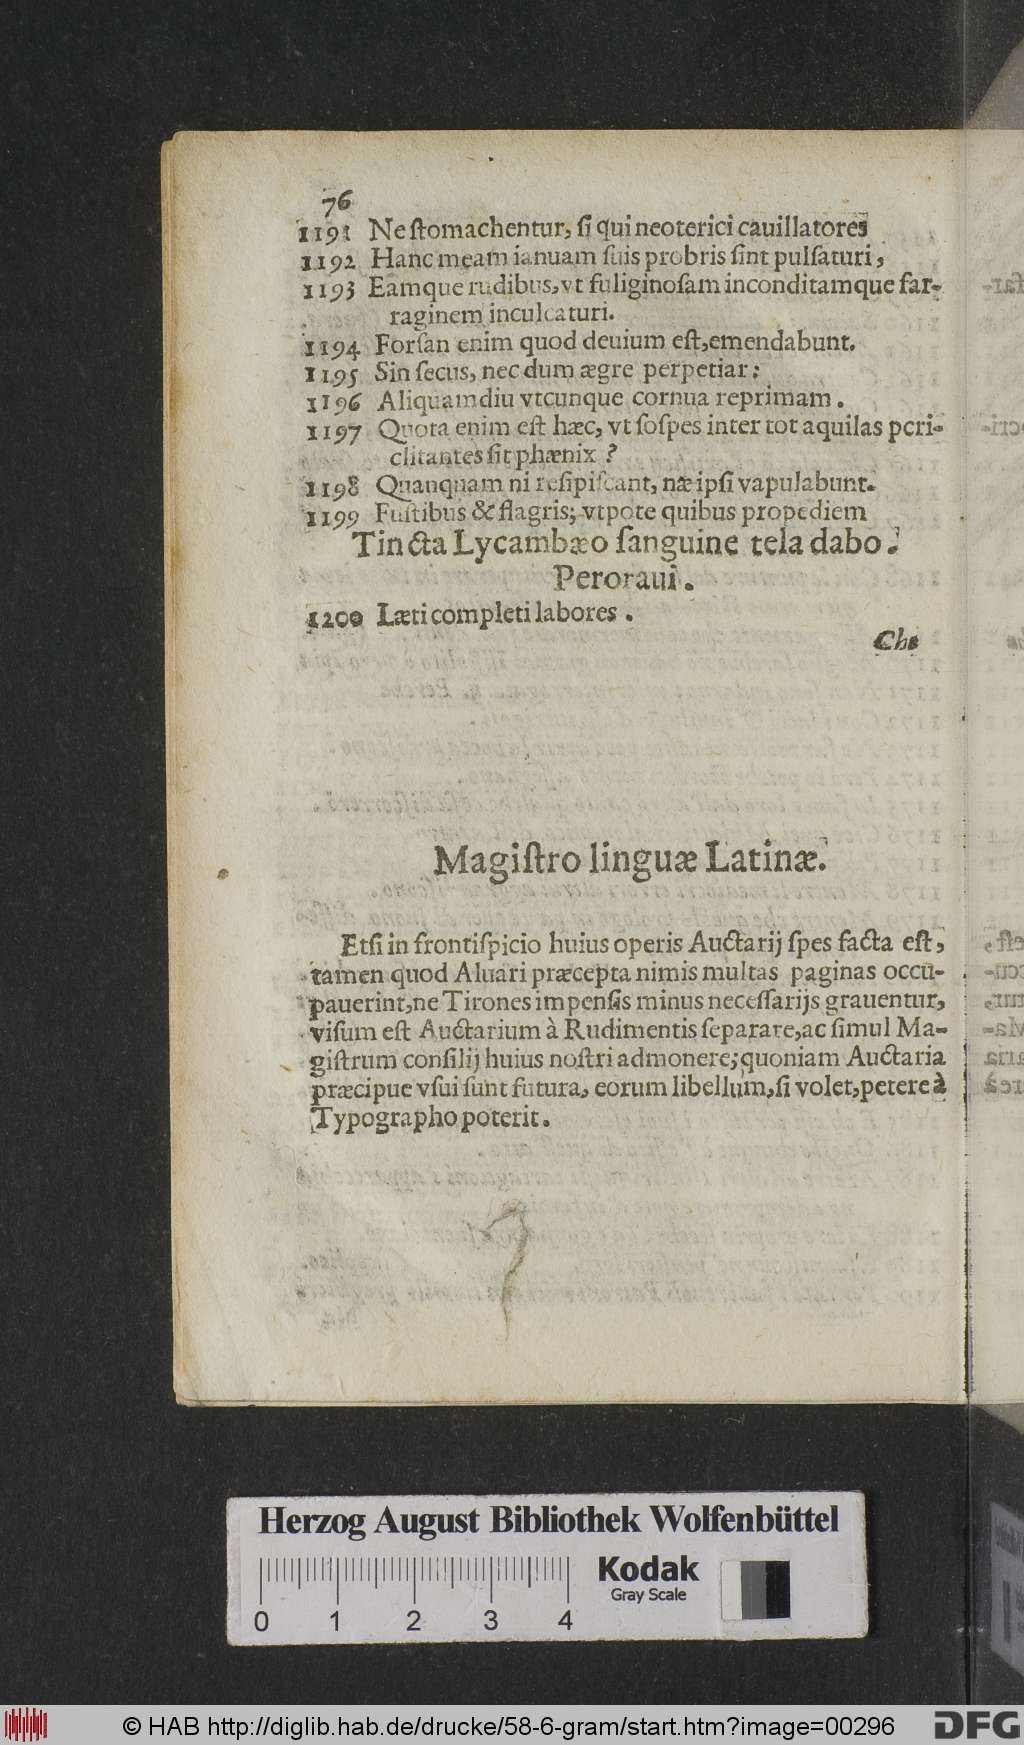 76
1191 Ne ſtomachentur, ſi qui neoterici cauillatores
1192 Hanc meam ianuam ſuis probris ſint pulſaturi,
1193 Eamque rudibus, vt fuliginoſam inconditamque far-
raginem inculcaturi.
1194 Forſan enim quod deuium eſt, emendabunt.
1195 Sin ſecus, nec dum ægre perpetiar:
1196 Aliquamdiu vtcunque cornua reprimam.
1197 Quota enim eſt hæc, vt ſoſpes inter tot aquilas peri-
clitantes ſit phænix?
1198 Quanquam ni reſipiſcant, næ ipſi vapulabunt.
1199 Fuſtibus & flagris; vtpote quibus propediem
Tincta Lycambæo ſanguine tela dabo.
Peroraui.
1200 Læti completi labores.
Che
Magiſtro linguæ Latinæ.
Etſi in frontiſpicio huius operis Auctarij ſpes facta eſt,
tamen quod Aluari præcepta nimis multas paginas occu-
pauerint, ne Tirones impenſis minus neceſſarijs grauentur,
viſum eſt Auctarium à Rudimentis ſeparare, ac ſimul Ma-
giſtrum conſilij huius noſtri admonere; quoniam Auctaria
præcipue vſui ſunt futura, eorum libellum, ſi volet, petere à
Typographo poterit.
Herzog August Bibliothek Wolfenbüttel
Kodak
Gray Scale
0 1 2 3 4
© HAB http://diglib.hab.de/drucke/58-6-gram/start.htm?image=00296
DFG